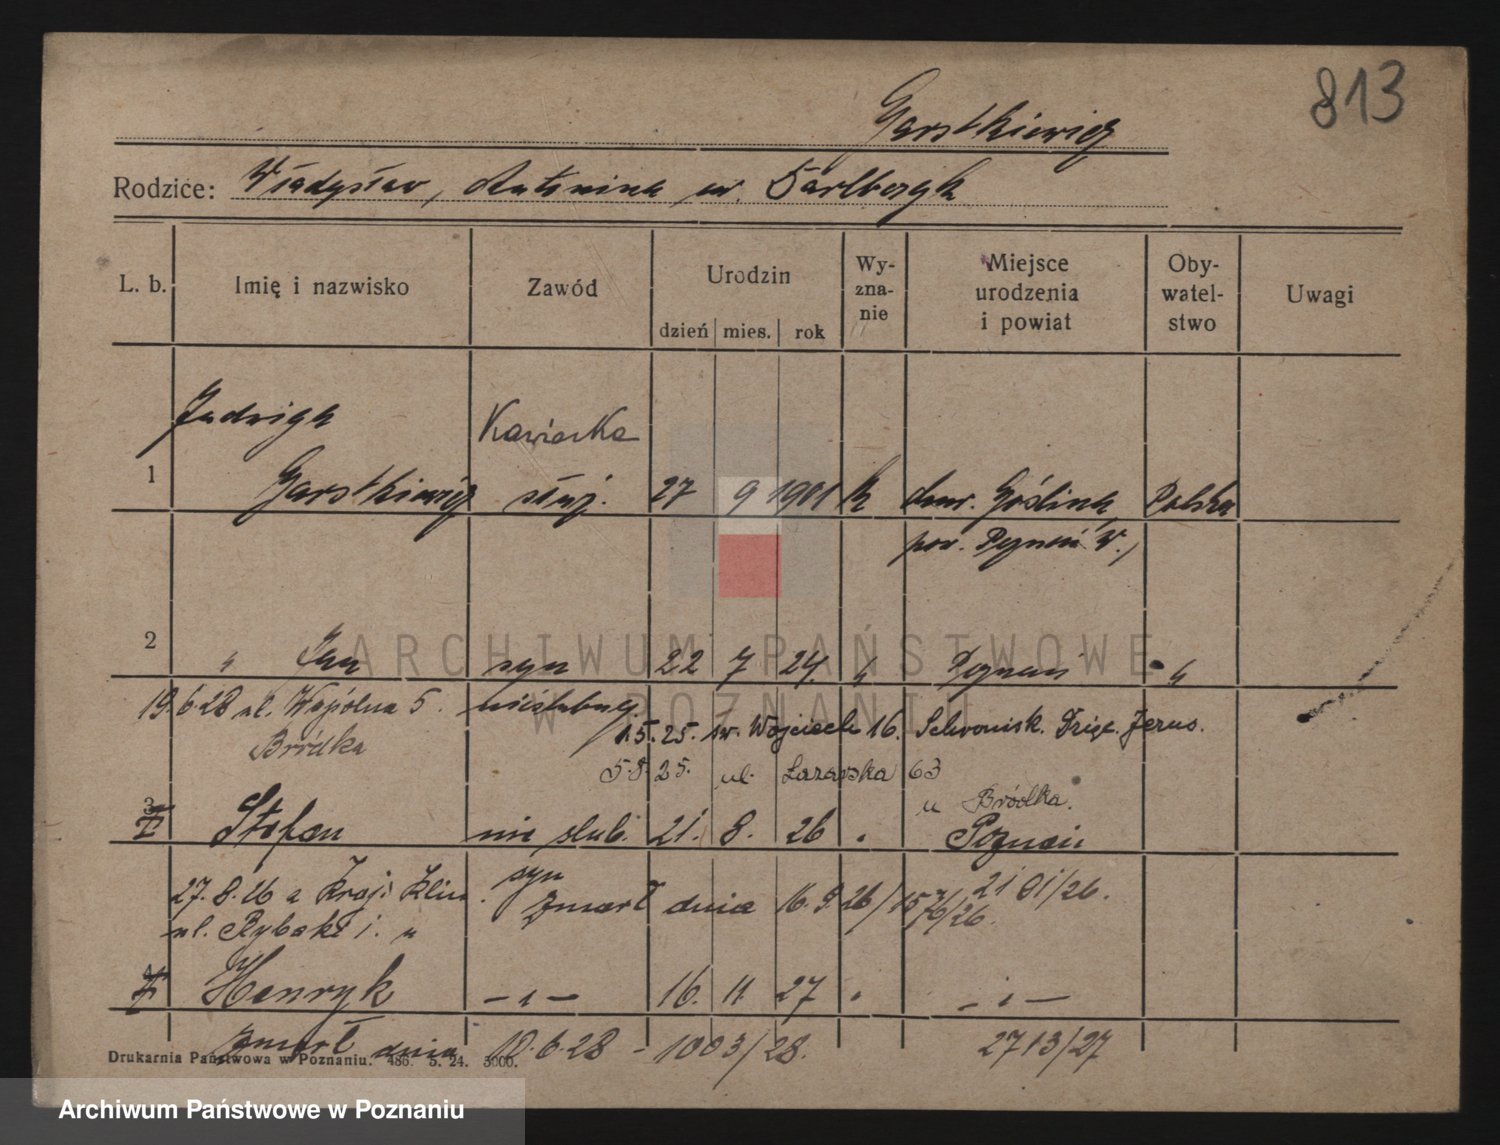 813
Garstkiewicz
Rodzice: Władysław, Antonina ur.
L. b. Imię i nazwisko Zawód Urodzin dzień mies. rok Wy-zna-nie Miejsce urodzenia i powiat Oby-watel-stwo Uwagi
Jadwiga Kawiarka
1 Garstkiewicz służ. 27 9 1901 k Goślina Polska
pow. Poznań W.
2 " Jan syn 22 7 24. " Poznań "
ARCHIWUM PAŃSTWOWE
W POZNANIU
19.6.28 ul. Wspólna 5. nieślubny
1.5.25. św. Wojciech 16. Schronisk. Dzięc. Jezus.
Bródka 5.8.25. ul. Łazarska 63
u Bródka.
3 Stefan nie ślub. 21. 8. 26 " Poznań
syn
27.8.26 z Kraj. Klin. zmarł dnia 16.9.26/1576/26. 21 81/26.
ul. Rybaki 1. u
4 Henryk – " – 16. 11 27 " – " –
zmarł dnia 12.6.28 – 1003/28. 2713/27
Drukarnia Państwowa w Poznaniu. 486. 5. 24. 5000.
Archiwum Państwowe w Poznaniu